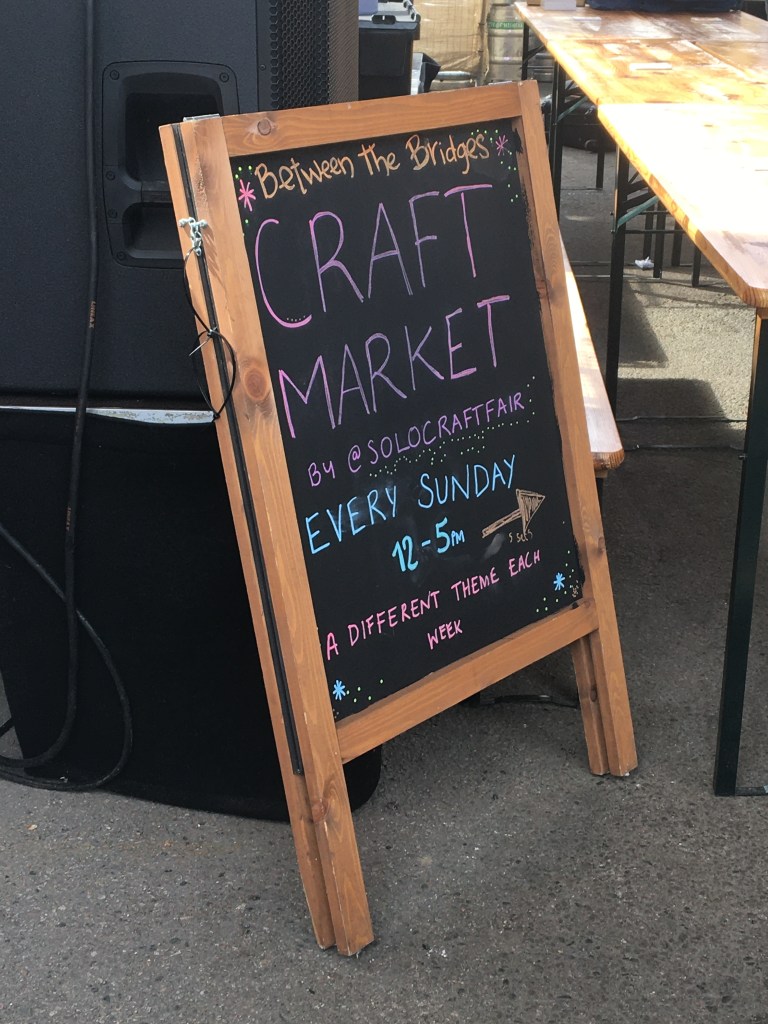 Between the Bridges
CRAFT
MARKET
By @SOLOCRAFTFAIR
EVERY SUNDAY
12-5PM
5 secs
A DIFFERENT THEME EACH
WEEK